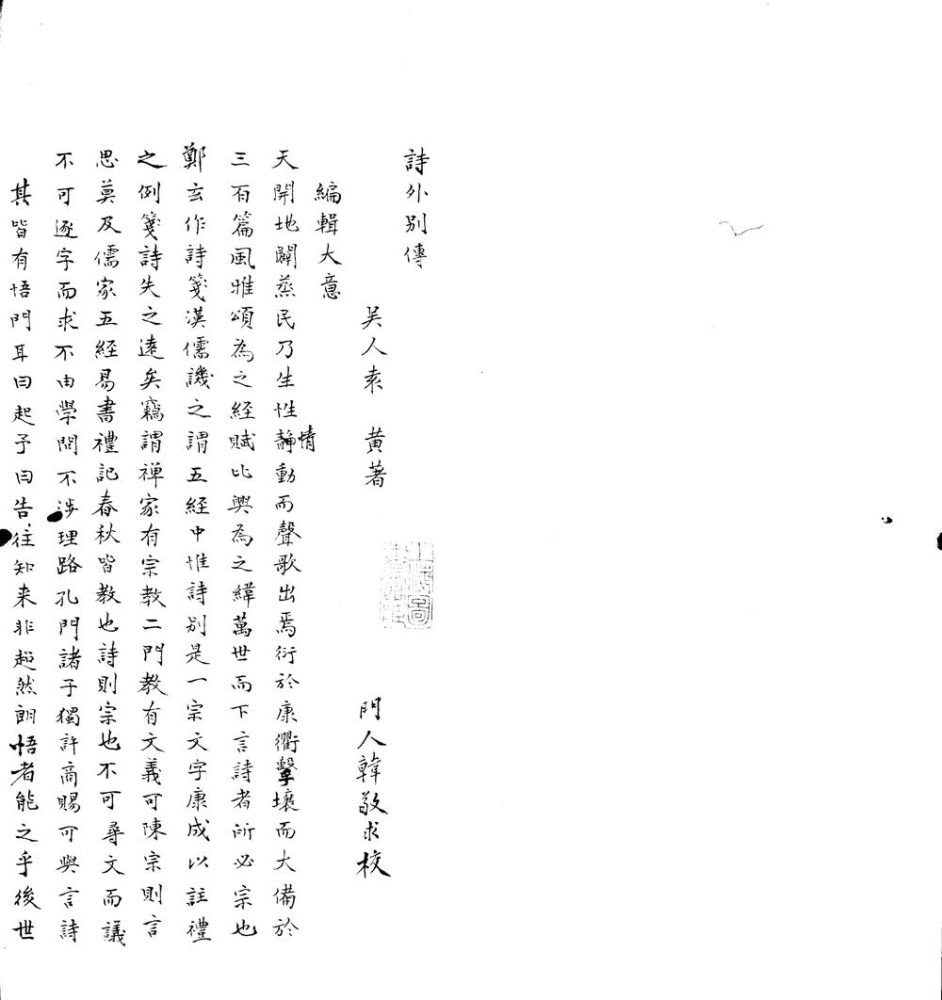 詩外別傳
吴人袁　黄著　門人韓敬求校
編輯大意
天開地闢蒸民乃生性情靜動而聲歌出焉衍於康衢擊壤而大備於
三百篇風雅頌為之經賦比興為之緯萬世而下言詩者所必宗也
鄭玄作詩箋漢儒譏之謂五經中惟詩別是一宗文字康成以註禮
之例箋詩失之遠矣竊謂禅家有宗教二門教有文義可陳宗則言
思莫及儒家五經易書禮記春秋皆教也詩則宗也不可尋文而議
不可逐字而求不由學問不涉理路孔門諸子獨許商賜可與言詩
其皆有悟門耳曰起予曰告往知来非超然朗悟者能之乎後世